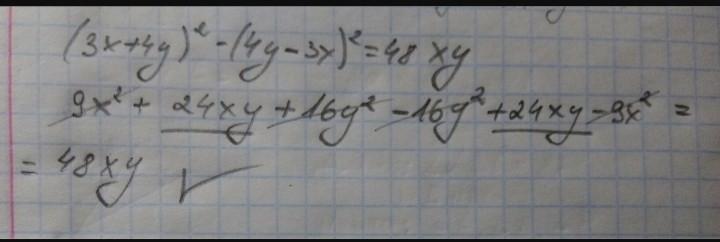 (3x+4y)² - (4y-3x)² = 48xy
9x² + 24xy + 16y² - 16y² + 24xy - 9x² =
= 48xy ✓